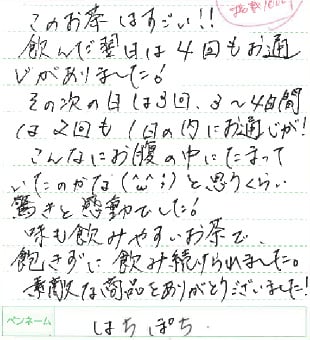 このお茶はすごい!!
飲んだ翌日は4回もお通
じがありました!
その次の日は3回、3〜4日間
は2回も1日の内にお通じが!
こんなにお腹の中にたまって
いたのかな(^ω^;)と思うくらい
驚きと感動でした!
味も飲みやすいお茶で、
飽きずに飲み続けられました。
素敵な商品をありがとうございました!
ペンネーム
はちぽち